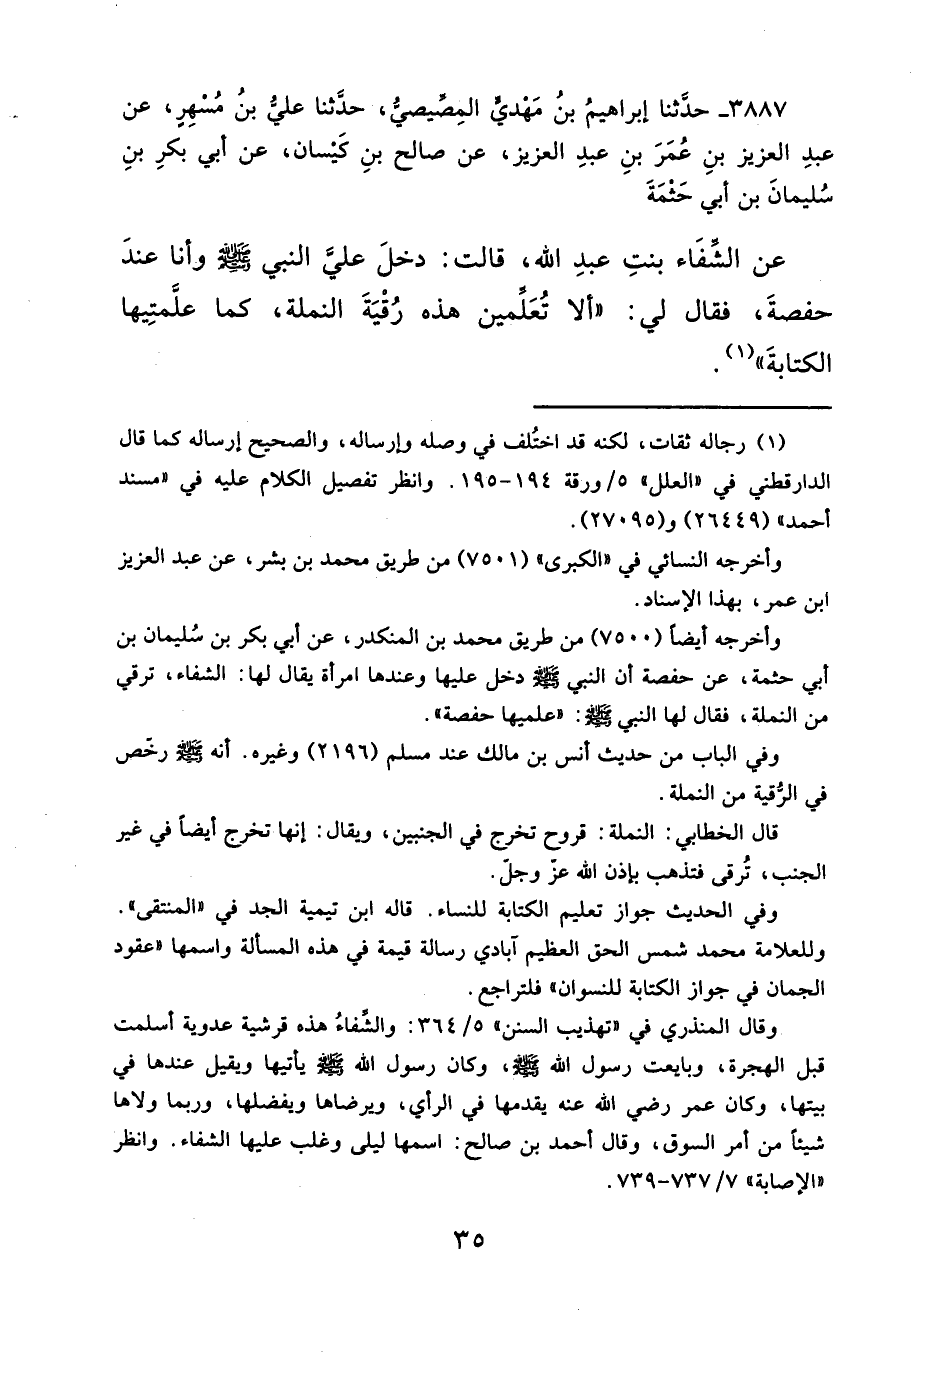 ٣٨٨٧ـ حدَّثنا إبراهيمُ بنُ مَهْديٍّ المِصِّيصيُّ، حدَّثنا عليُّ بنُ مُسْهِرٍ، عن
عبدِ العزيز بنِ عُمَرَ بنِ عبدِ العزيز، عن صالح بنِ كَيْسان، عن أبي بكرِ بنِ
سُليمانَ بن أبي حَثْمَةَ
عن الشِّفَاء بنتِ عبدِ الله، قالت: دخلَ عليَّ النبي ﷺ وأنا عندَ
حفصةَ، فقال لي: «ألا تُعَلِّمين هذه رُقْيَةَ النملة، كما علَّمتِيها
الكتابةَ»(١).
(١) رجاله ثقات، لكنه قد اختُلف في وصله وإرساله، والصحيح إرساله كما قال
الدارقطني في «العلل» ٥/ورقة ١٩٤-١٩٥. وانظر تفصيل الكلام عليه في «مسند
أحمد» (٢٦٤٤٩) و(٢٧٠٩٥).
وأخرجه النسائي في «الكبرى» (٧٥٠١) من طريق محمد بن بشر، عن عبد العزيز
ابن عمر، بهذا الإسناد.
وأخرجه أيضاً (٧٥٠٠) من طريق محمد بن المنكدر، عن أبي بكر بن سُليمان بن
أبي حثمة، عن حفصة أن النبي ﷺ دخل عليها وعندها امرأة يقال لها: الشفاء، ترقي
من النملة، فقال لها النبي ﷺ: «علميها حفصة».
وفي الباب من حديث أنس بن مالك عند مسلم (٢١٩٦) وغيره. أنه ﷺ رخّص
في الرُّقية من النملة.
قال الخطابي: النملة: قروح تخرج في الجنبين، ويقال: إنها تخرج أيضاً في غير
الجنب، تُرقى فتذهب بإذن الله عزّ وجلّ.
وفي الحديث جواز تعليم الكتابة للنساء. قاله ابن تيمية الجد في «المنتقى».
وللعلامة محمد شمس الحق العظيم آبادي رسالة قيمة في هذه المسألة واسمها «عقود
الجمان في جواز الكتابة للنسوان» فلتراجع.
وقال المنذري في «تهذيب السنن» ٥/ ٣٦٤: والشِّفاءُ هذه قرشية عدوية أسلمت
قبل الهجرة، وبايعت رسول الله ﷺ، وكان رسول الله ﷺ يأتيها ويقيل عندها في
بيتها، وكان عمر رضي الله عنه يقدمها في الرأي، ويرضاها ويفضلها، وربما ولاها
شيئاً من أمر السوق، وقال أحمد بن صالح: اسمها ليلى وغلب عليها الشفاء. وانظر
«الإصابة» ٧/ ٧٣٧-٧٣٩.
٣٥